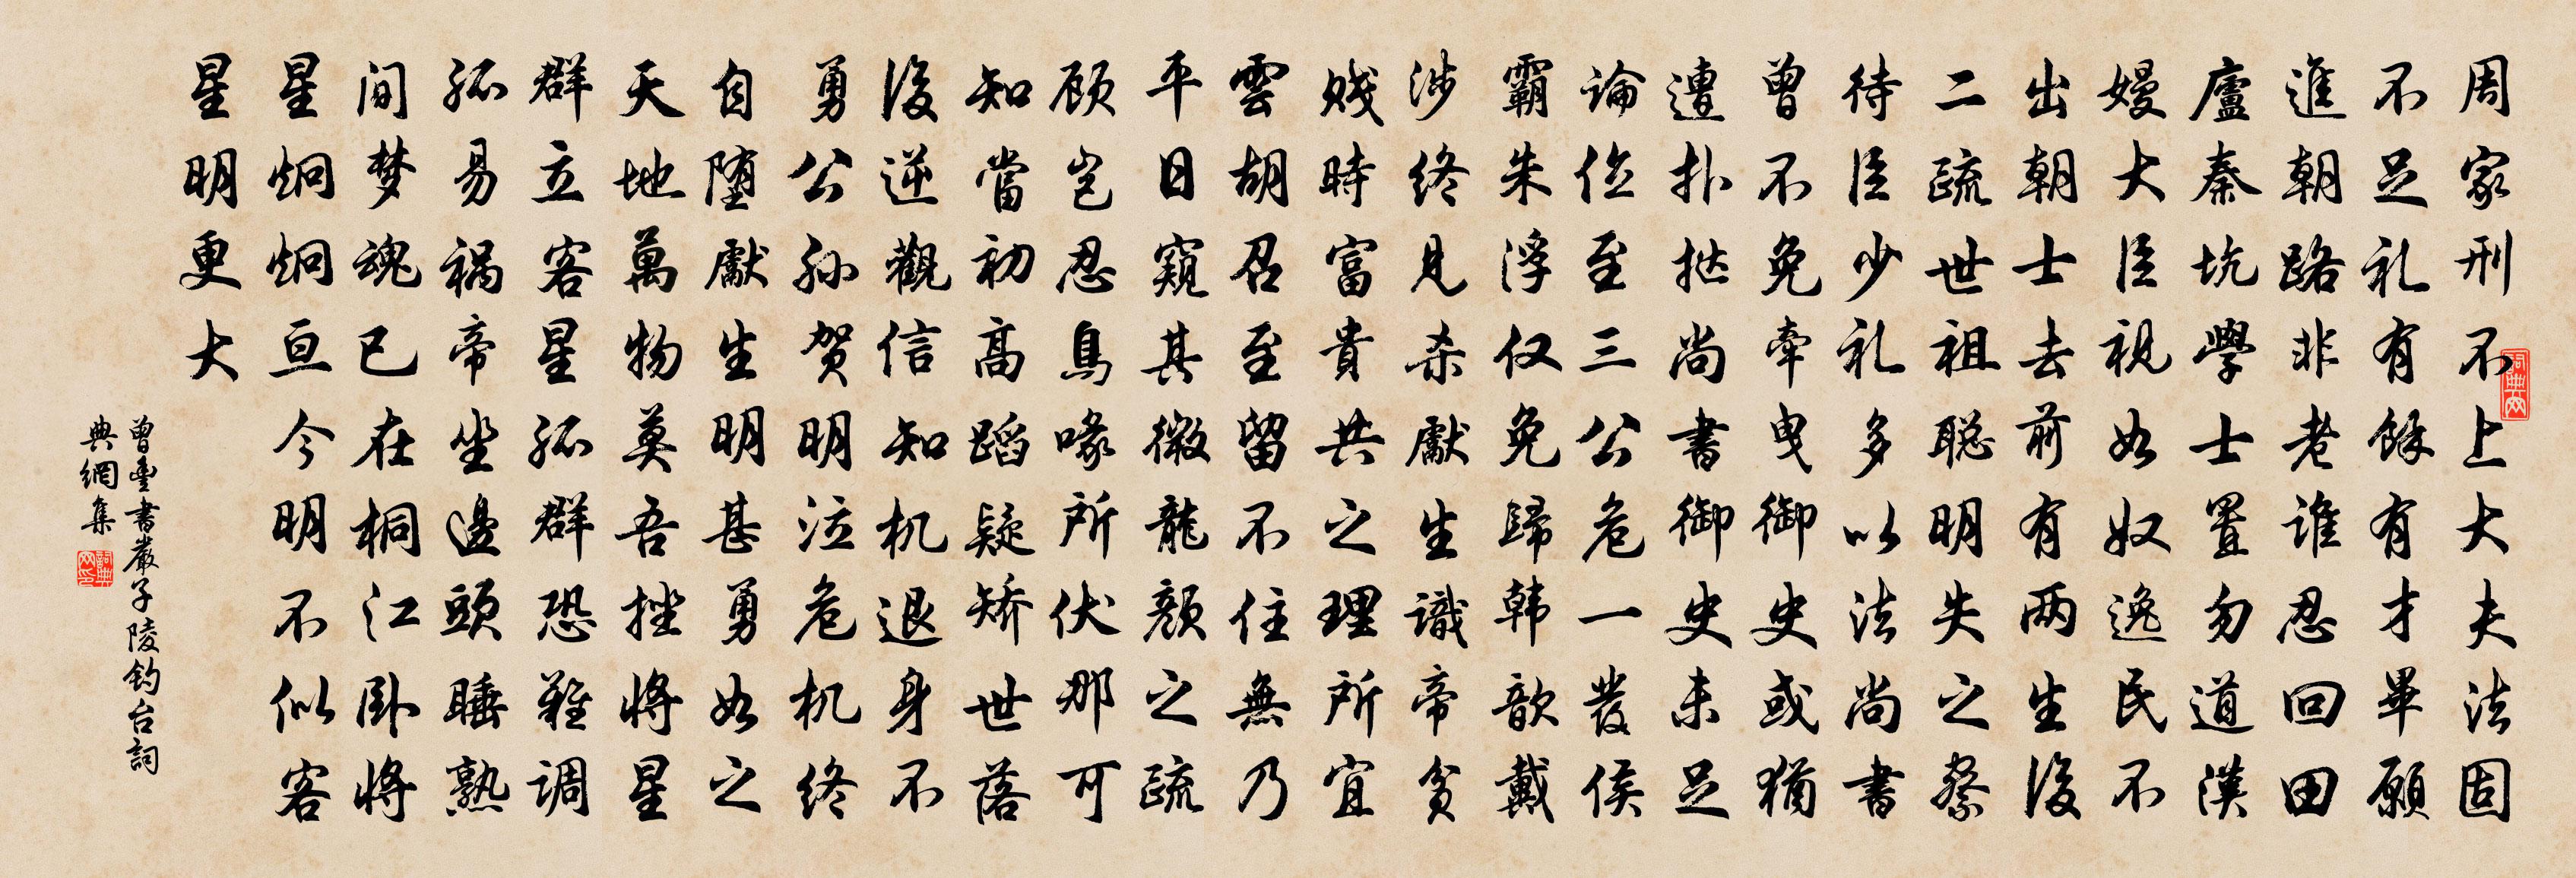 周家刑不上大夫法固
不足礼有餘有才畢願
進朝路非老谁忍回田
廬秦坑學士置勿道漢
嫚大臣視如奴逸民不
出朝士去前有两生後
二疏世祖聪明失之察
待臣少礼多以法尚書
曾不免牵曳御史或猶
遭扑挞尚書御史未足
论位至三公危一發侯
霸朱浮仅免歸韩歆戴
涉终見杀獻生識帝贫
贱時富貴共之理所宜
雲胡召至留不住無乃
平日窺其微龍颜之疏
顾岂忍鳥喙所伏那可
知當初高蹈疑矫世落
後逆觀信知机退身不
勇公孙贺明泣危机终
自堕獻生明甚勇如之
天地萬物莫吾挫将星
群立客星孤群恐难调
孤易祸帝坐邊頭睡熟
间梦魂已在桐江卧将
星炯炯亘今明不似客
星明更大
曾豐書嚴子陵钓台詞
典網集
詞典网
詞典网印